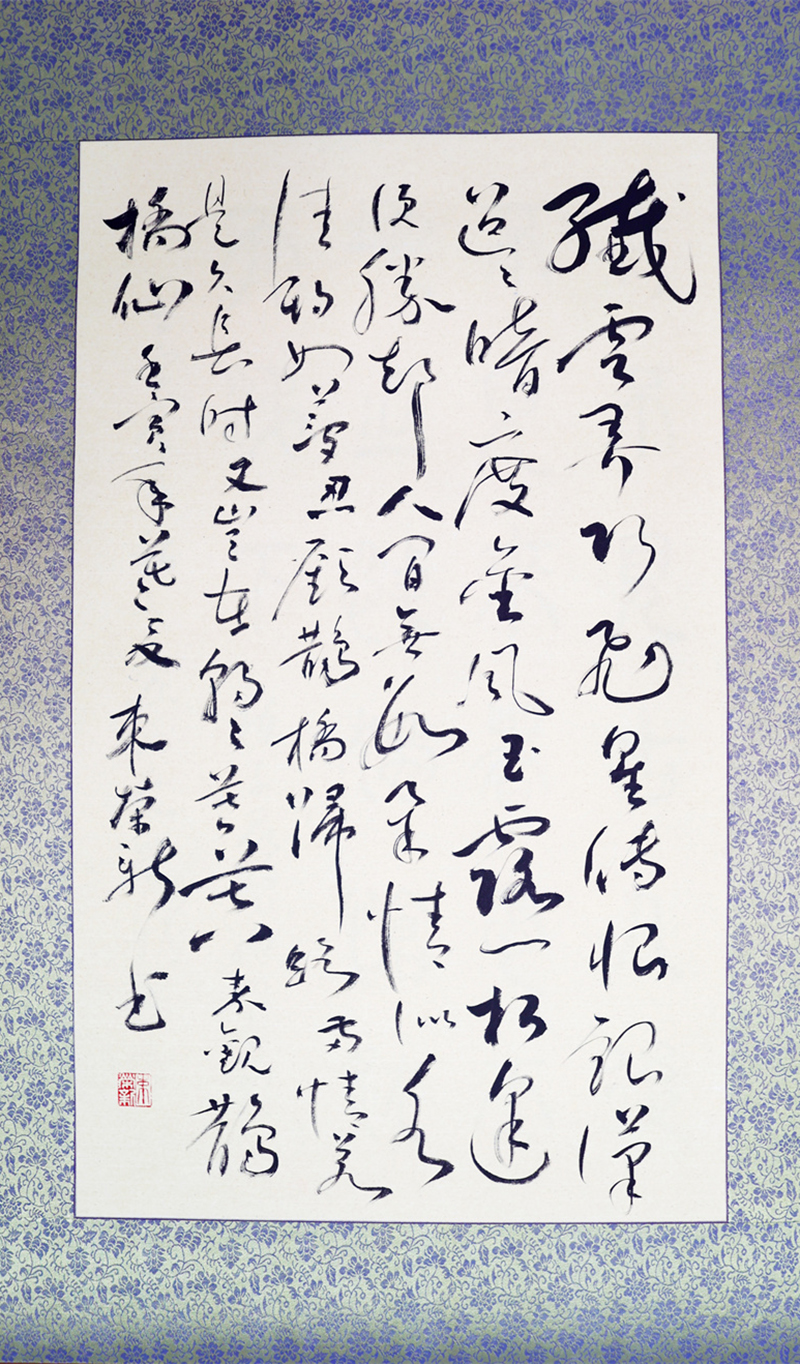 纖雲弄巧飛星傳恨銀漢
迢〻暗度金風玉露一相逢
便勝却人間無數柔情似水
佳期如夢忍顧鵲橋歸路兩情若
是久長时又豈在朝〻暮暮秦觀鵲
橋仙 壬寅年暮夏 榮新书